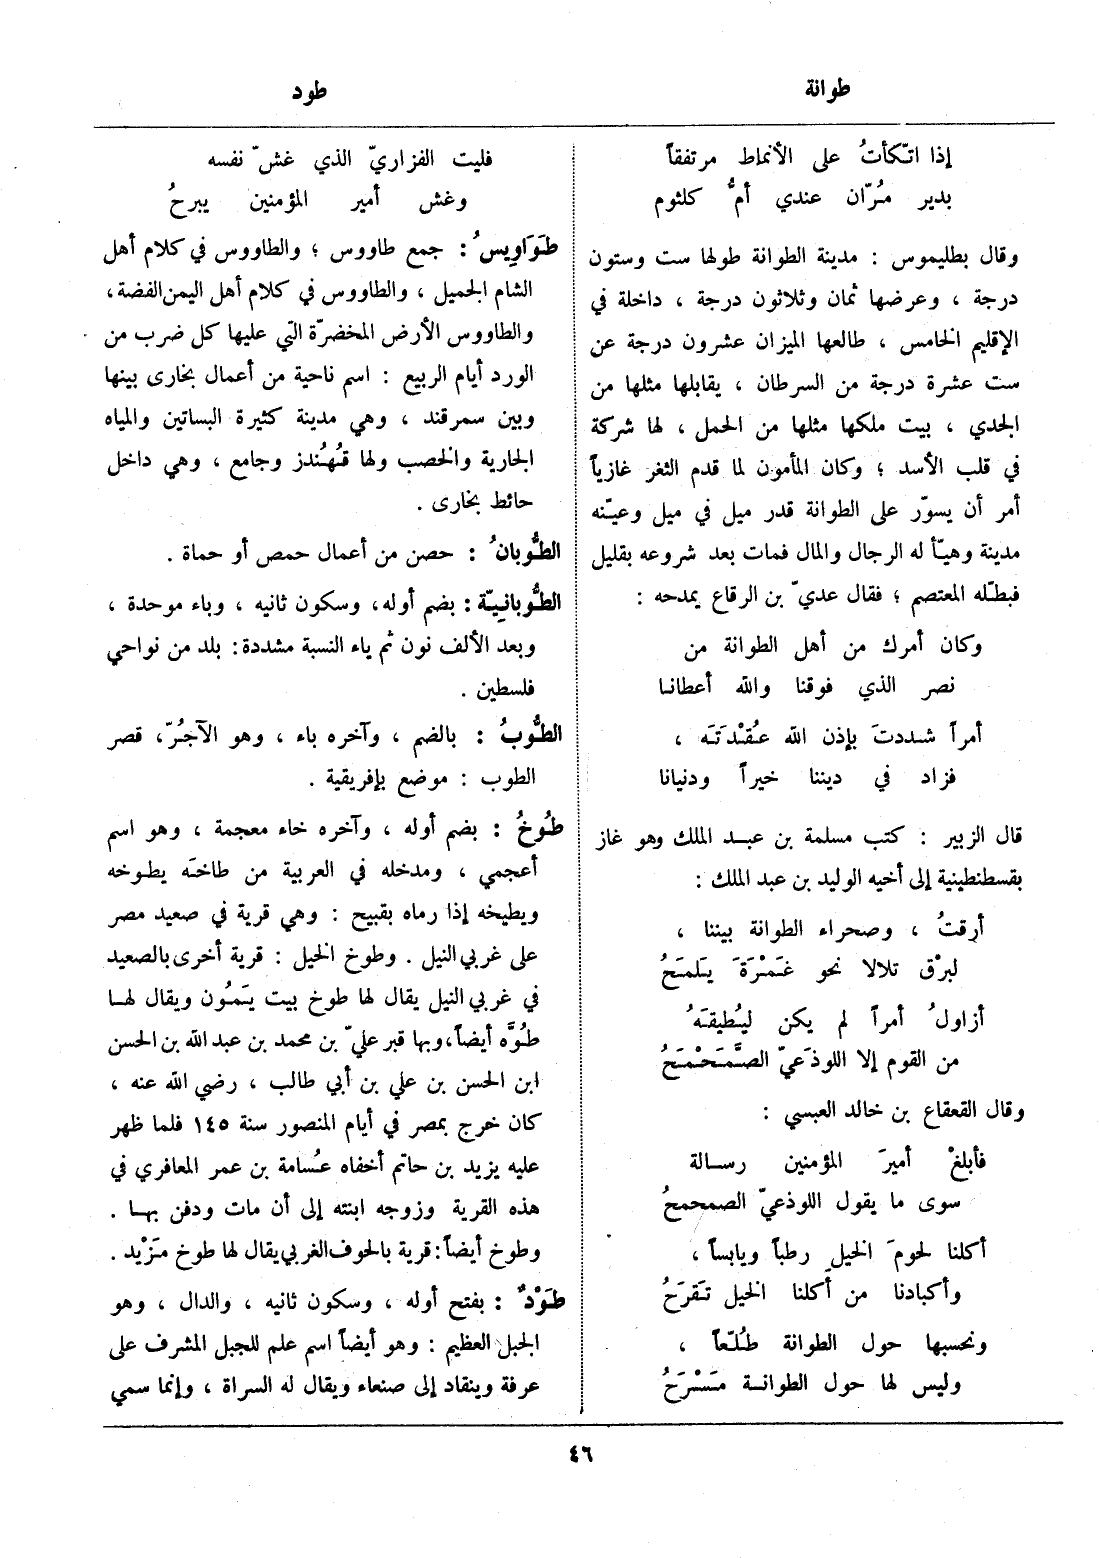 طوانة
طود
إذا اتّكأتُ على الأنماط مرتفقاً
بدير مُرّان عندي أمُّ كلثوم
وقال بطليموس : مدينة الطوانة طولها ست وستون
درجة ، وعرضها ثمان وثلاثون درجة ، داخلة في
الإقليم الخامس ، طالعها الميزان عشرون درجة عن
ست عشرة درجة من السرطان ، يقابلها مثلها من
الجدي ، بيت ملكها مثلها من الحمل ، لها شركة
في قلب الأسد ؛ وكان المأمون لما قدم الثغر غازياً
أمر أن يسوّر على الطوانة قدر ميل في ميل وعيّنه
مدينة وهيّأ له الرجال والمال فمات بعد شروعه بقليل
فبطّله المعتصم ؛ فقال عديّ بن الرقاع يمدحه :
وكان أمرك من أهل الطوانة من
نصر الذي فوقنا والله أعطانا
أمراً شددتَ بإذن الله عُقْدَتَه ،
فزاد في ديننا خيراً ودنيانا
قال الزبير : كتب مسلمة بن عبد الملك وهو غاز
بقسطنطينية إلى أخيه الوليد بن عبد الملك :
أرِقتُ ، وصحراء الطوانة بيننا ،
لبرْق تلالا نحو غَمْرَةَ يَلمَحُ
أزاولُ أمراً لم يكن ليُطيقَهُ
من القوم إلا اللوذَعيّ الصَّمَحْمَحُ
وقال القعقاع بن خالد العبسي :
فأبلغْ أميرَ المؤمنين رسالة
سوى ما يقول اللوذعيّ الصمحمحُ
أكلنا لحومَ الخيل رطباً ويابساً ،
وأكبادنا من أكلنا الخيل تَقرَحُ
ونحسبها حول الطوانة طُلّعاً ،
وليس لها حول الطوانة مَسْرَحُ
فليت الفزاريّ الذي غشّ نفسه
وغش أمير المؤمنين يبرحُ
طَوَاوِيسُ : جمع طاووس ؛ والطاووس في كلام أهل
الشام الجميل ، والطاووس في كلام أهل اليمن الفضة ،
والطاووس الأرض المخضرّة التي عليها كل ضرب من
الورد أيام الربيع : اسم ناحية من أعمال بخارى بينها
وبين سمرقند ، وهي مدينة كثيرة البساتين والمياه
الجارية والخصب ولها قُهُندز وجامع ، وهي داخل
حائط بخارى .
الطُّوبانُ : حصن من أعمال حمص أو حماة .
الطُّوبانِيّة : بضم أوله، وسكون ثانيه ، وباء موحدة ،
وبعد الألف نون ثم ياء النسبة مشددة : بلد من نواحي
فلسطين .
الطُّوبُ : بالضم ، وآخره باء ، وهو الآجُرّ ، قصر
الطوب : موضع بإفريقية .
طُوخُ : بضم أوله ، وآخره خاء معجمة ، وهو اسم
أعجمي ، ومدخله في العربية من طاخَه يطوخه
ويطيخه إذا رماه بقبيح : وهي قرية في صعيد مصر
على غربي النيل . وطوخ الخيل : قرية أخرى بالصعيد
في غربي النيل يقال لها طوخ بيت يَمُون ويقال لها
طُوَّه أيضاً، وبها قبر عليّ بن محمد بن عبد الله بن الحسن
ابن الحسن بن علي بن أبي طالب ، رضي الله عنه ،
كان خرج بمصر في أيام المنصور سنة ١٤٥ فلما ظهر
عليه يزيد بن حاتم أخفاه عُسامة بن عمر المعافري في
هذه القرية وزوجه ابنته إلى أن مات ودفن بها .
وطوخ أيضاً: قرية بالحوف الغربي يقال لها طوخ مَزْيد .
طَوْدٌ : بفتح أوله ، وسكون ثانيه ، والدال ، وهو
الجبل العظيم : وهو أيضاً اسم علم للجبل المشرف على
عرفة وينقاد إلى صنعاء ويقال له السراة ، وإنما سمي
٤٦